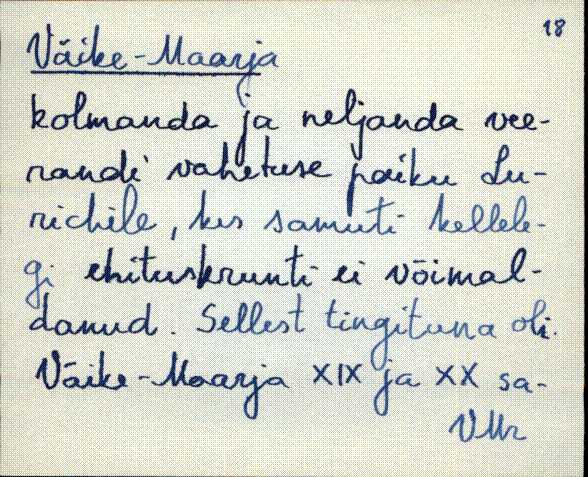 18
Väike-Maarja
kolmanda ja neljanda vee-
randi vahetuse paiku Lu-
richile, kes samuti kellele-
gi ehituskrunti ei võimal-
danud. Sellest tingituna oli
Väike-Maarja XIX ja XX sa-
VMr